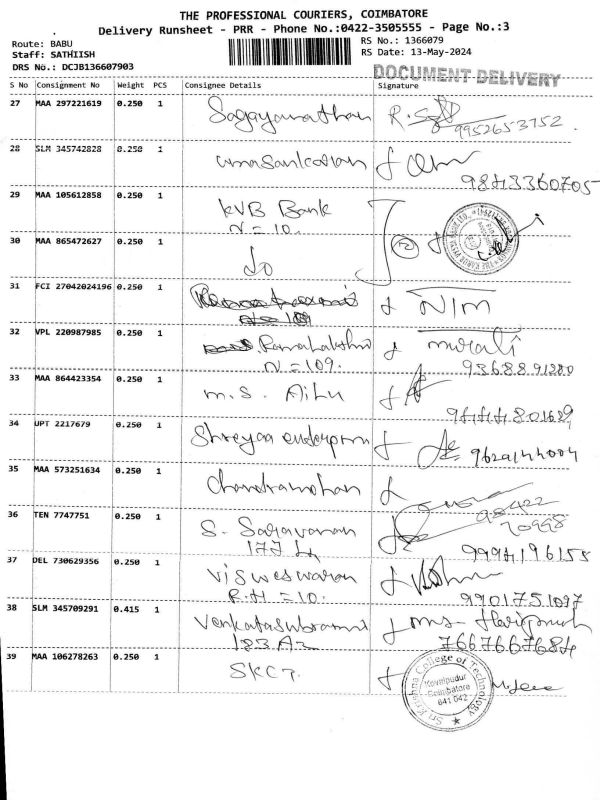 THE PROFESSIONAL COURIERS, COIMBATORE
Delivery Runsheet - PRR - Phone No.:0422-3505555 - Page No.:3
Route: BABU RS No.: 1366079
Staff: SATHIISH RS Date: 13-May-2024
DRS No.: DCJB136607903 DOCUMENT DELIVERY
S No Consignment No Weight PCS Consignee Details Signature
27 MAA 297221619 0.250 1 Sagayanathan 9952653752
28 SLM 345742828 0.250 1 umasankaran 9843360705
29 MAA 105612858 0.250 1 KVB Bank
N = 10.
30 MAA 865472627 0.250 1 Do
31 FCI 27042024196 0.250 1
32 VPL 220987985 0.250 1 murali
N = 109. 9368891280
33 MAA 864423354 0.250 1 m.s.
34 UPT 2217679 0.250 1 Shreyaa 9629144004
35 MAA 573251634 0.250 1 Chandramohan
98422
36 TEN 7747751 0.250 1 S. Saravanan
9994196155
37 DEL 730629356 0.250 1 Visweswaran
R.H = 10. 9901751097
38 SLM 345709291 0.415 1
7667667684
39 MAA 106278263 0.250 1 SKCT
Sri Krishna College of Technology
Kovaipudur
Coimbatore
641 042